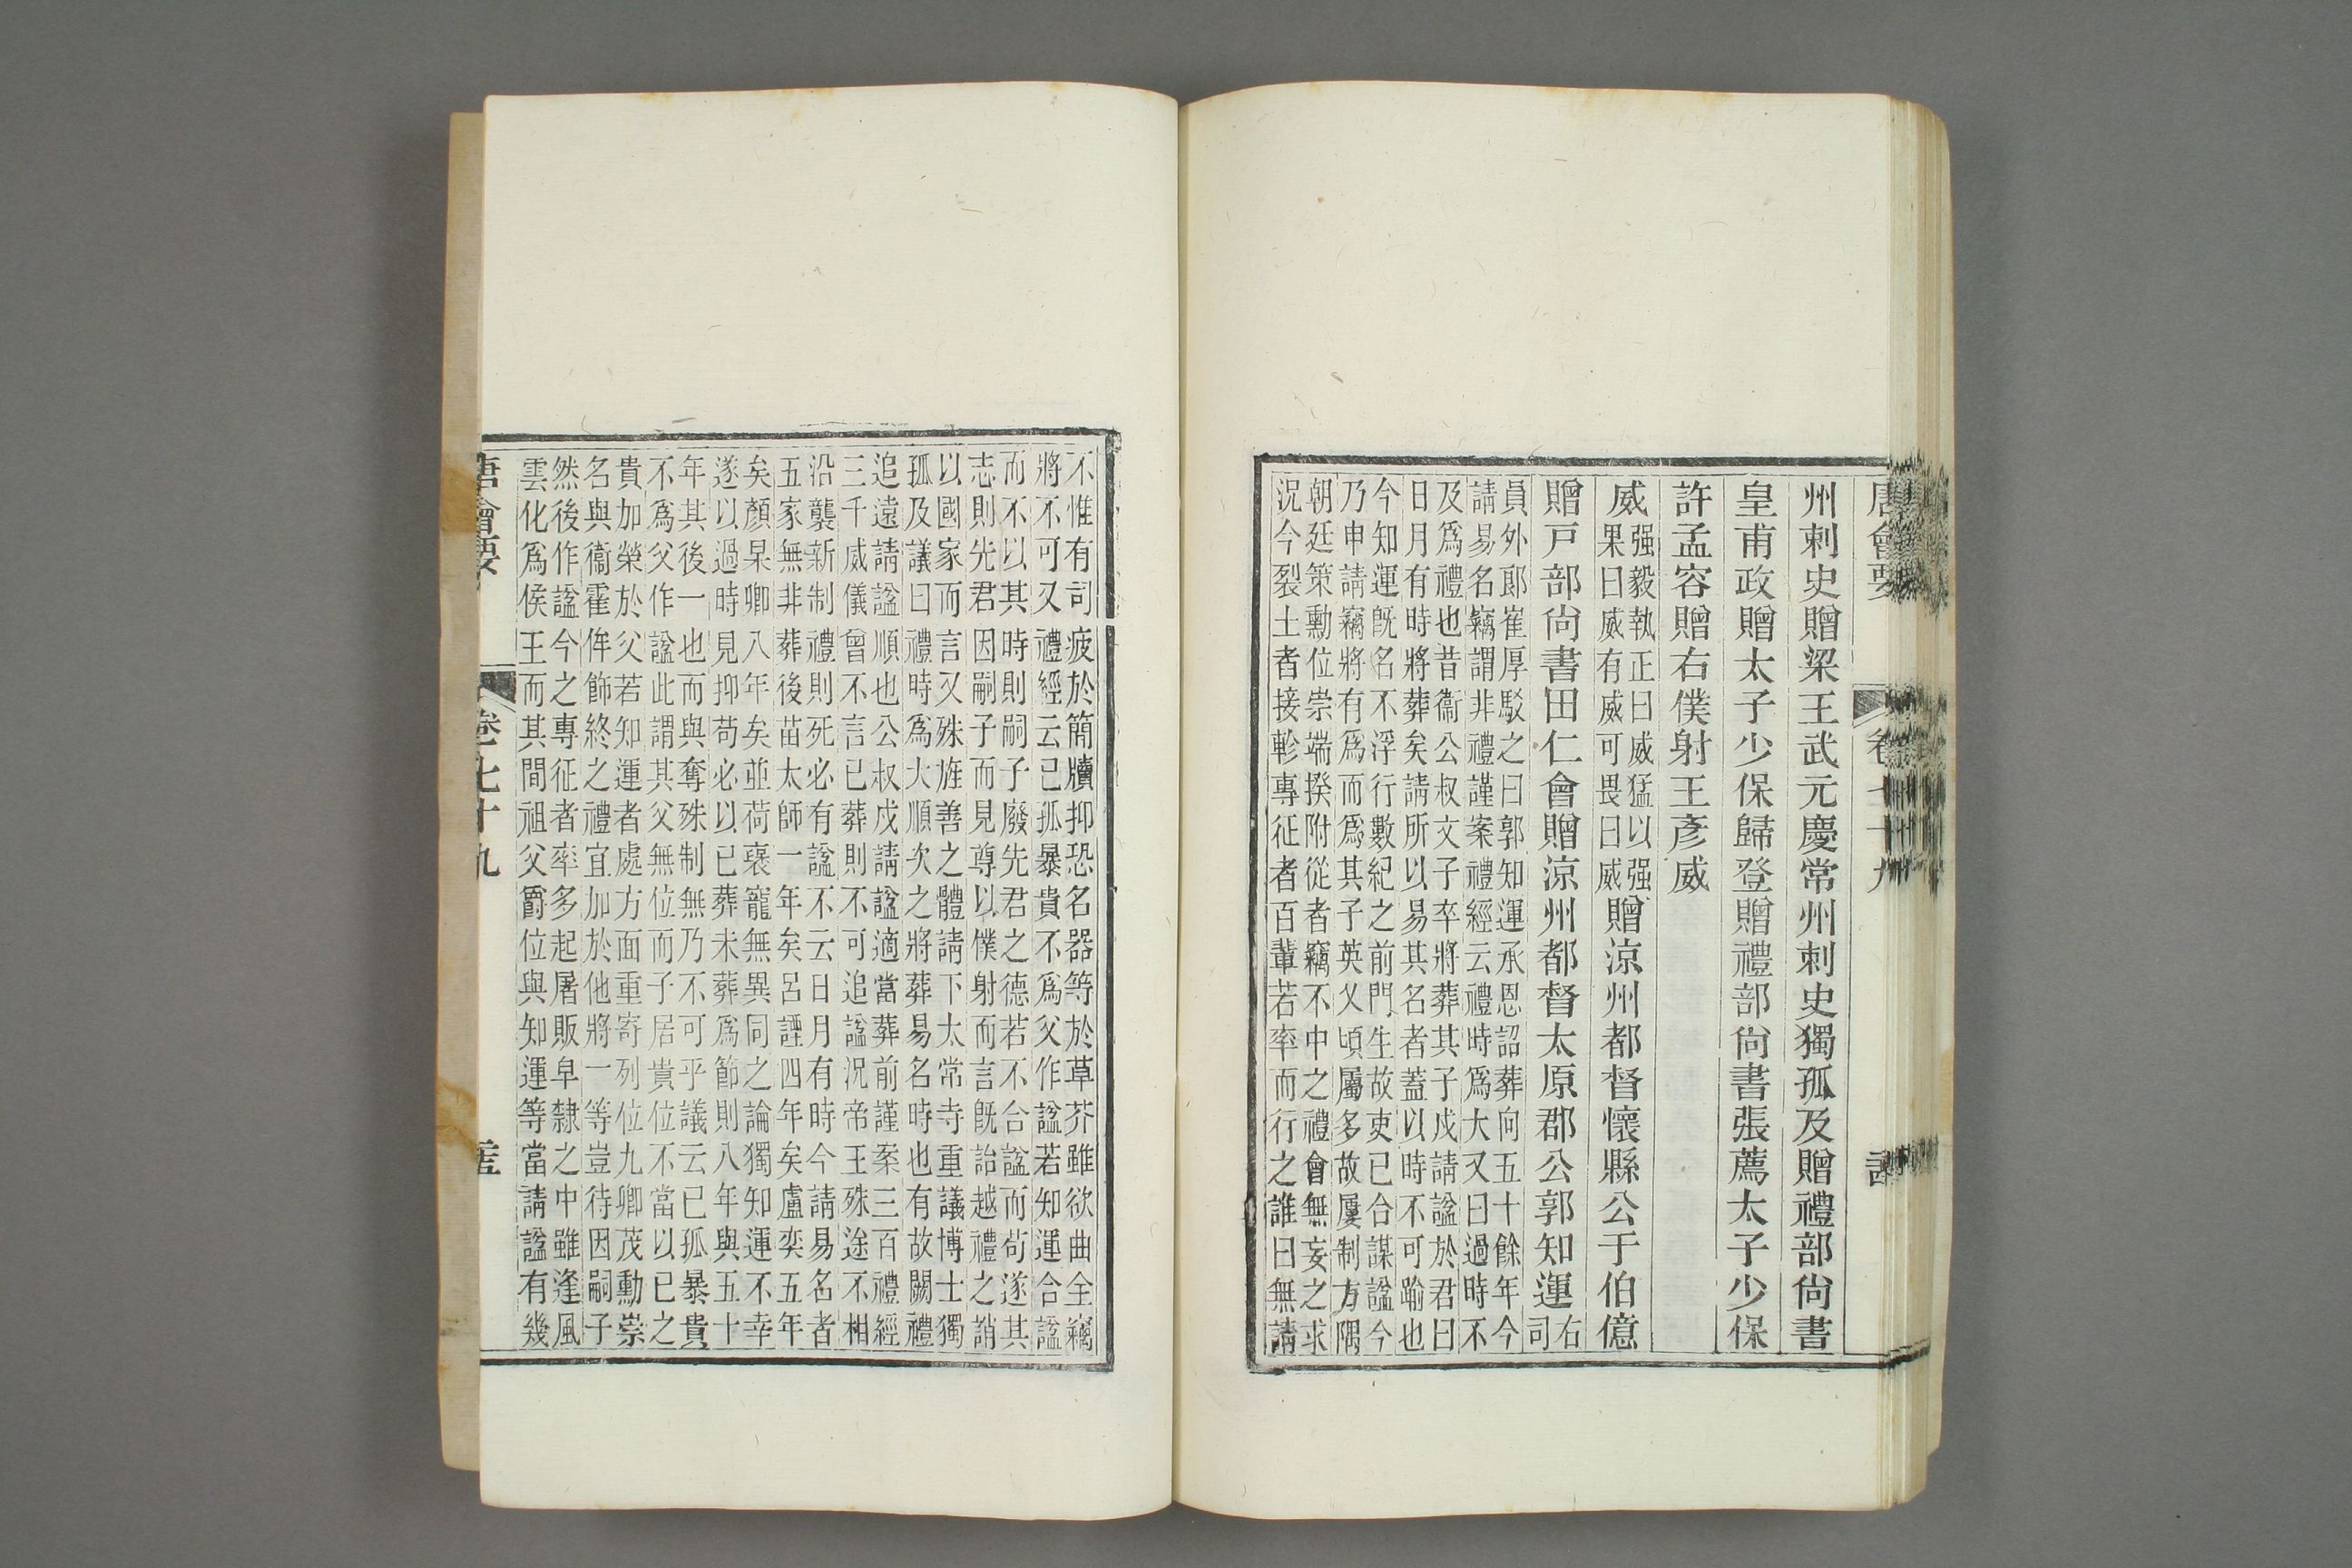 唐會要 卷七十九
州刺史贈梁王武元慶常州刺史獨孤及贈禮部尙書
皇甫政贈太子少保歸登贈禮部尙書張薦太子少保
許孟容贈右僕射王彥威
威
强毅執正曰威猛以强
果曰威有威可畏曰威
贈涼州都督懷縣公于伯億
贈戸部尙書田仁會贈涼州都督太原郡公郭知運
右
司
員外郎崔厚駁之曰郭知運承恩詔葬向五十餘年今
請易名竊謂非禮謹案禮經云禮時爲大又曰過時不
及爲禮也昔衞公叔文子卒將葬其子戍請諡於君曰
日月有時將葬矣請所以易其名者蓋以時不可踰也
今知運旣名不浮行數紀之前門生故吏已合謀諡今
乃申請竊將有爲而爲其子英乂頃屬多故屢制方隅
朝廷策勳位崇端揆附從者竊不中之禮會無妄之求
況今裂土者接軫專征者百輩若率而行之誰曰無請
不惟有司疲於簡牘抑恐名器等於草芥雖欲曲全竊
將不可又禮經云已孤暴貴不爲父作諡若知運合諡
而不以其時則嗣子廢先君之德若不合諡而苟遂其
志則先君因嗣子而見尊以僕射而言旣詒越禮之誚
以國家而言又殊旌善之體請下太常寺重議博士獨
孤及議曰禮時爲大順次之將葬易名時也有故闕禮
追遠請諡順也公叔戍請諡適當葬前謹案三百禮經
三千威儀曾不言已葬則不可追諡況帝王殊途不相
沿襲新制禮則死必有諡不云日月有時今請易名者
五家無非葬後苗太師一年矣呂諲四年矣盧奕五年
矣顏杲卿八年矣並荷褒寵無異同之論獨知運不幸
遂以過時見抑苟必以已葬未葬爲節則八年與五十
年其後一也而與奪殊制無乃不可乎議云已孤暴貴
不爲父作諡此謂其父無位而子居貴位不當以已之
貴加榮於父若知運者處方面重寄列位九卿茂勳崇
名與衞霍侔飾終之禮宜加於他將一等豈待因嗣子
然後作諡今之專征者率多起屠販皁隸之中雖逢風
雲化爲侯王而其間祖父爵位與知運等當請諡有幾
唐會要 卷七十九